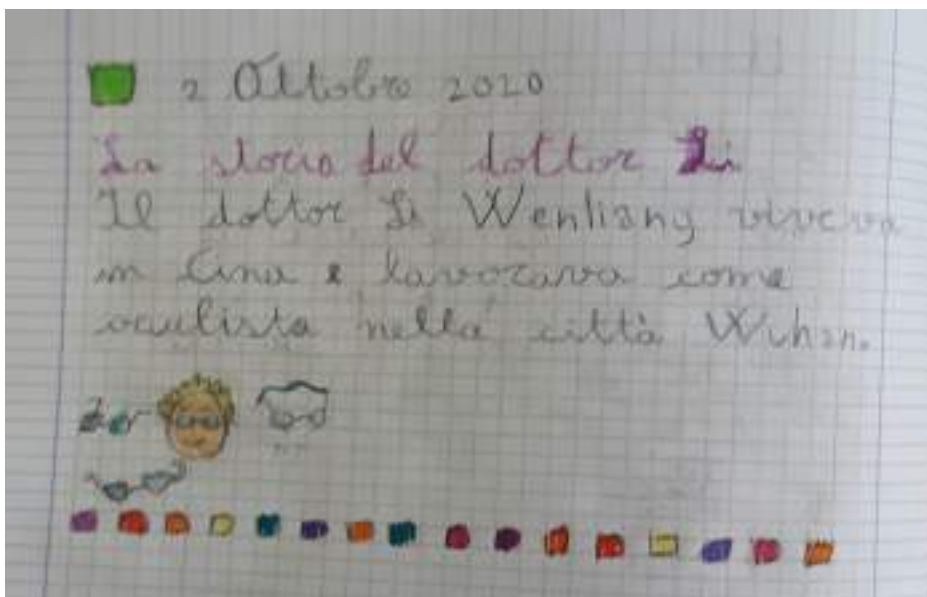 2 Ottobre 2020
La storia del dottor Li
Il dottor Li Wenliang viveva
in Cina e lavorava come
oculista nella città Wuhan.